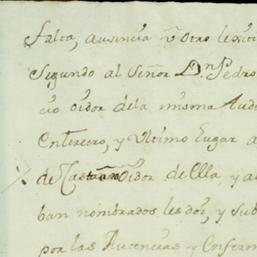 falta, ausencia ù otro lexiti
Segundo al Señor D.n Pedro
cio oidor dela misma Aud
Entercero, y Ultimo Lugar a
de Castaño oidor de Ella, y a
ban nombrados les doi, y sub
por las Ausencias y Enferm